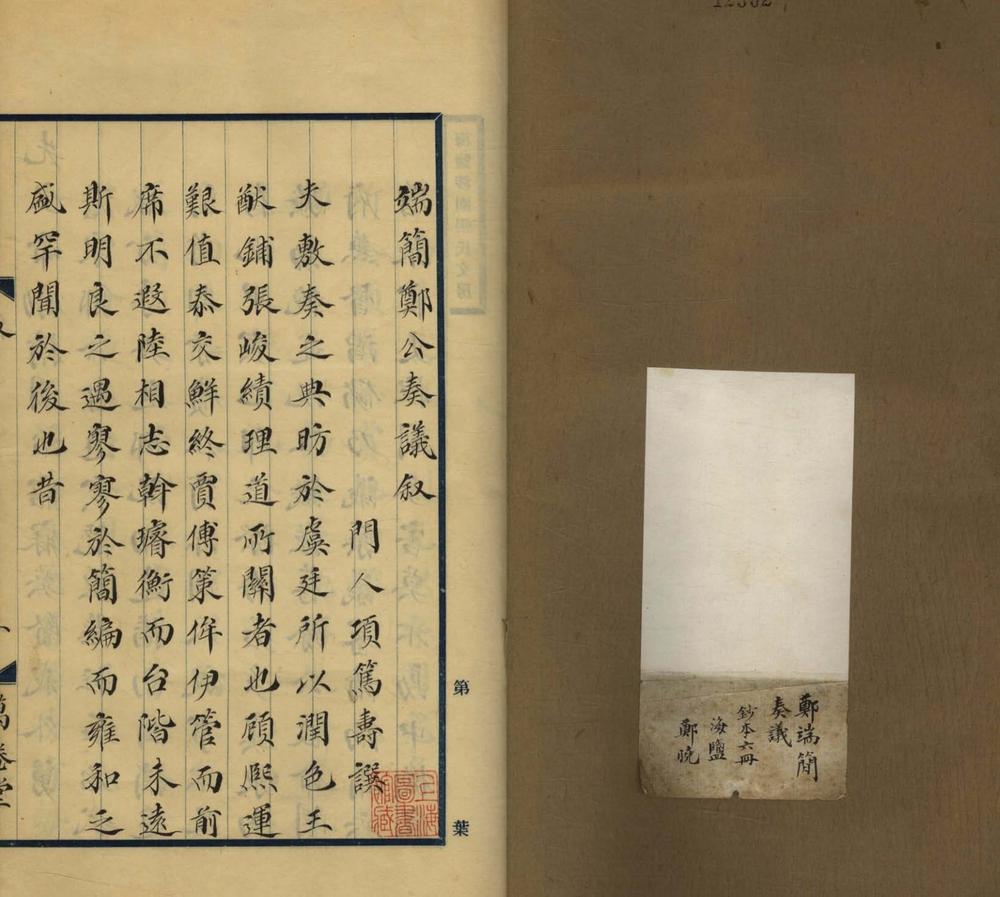 鄭端簡
奏議
鈔本六冊
海鹽
鄭曉
第 葉
端簡鄭公奏議叙
門人項篤壽譔
夫敷奏之典昉於虞廷所以潤色王
猷鋪張峻績理道所關者也顧熙運
艱值泰交鮮終賈傅策侔伊管而前
席不遐陸相志斡璿衡而台階未遠
斯明良之遇寥寥於簡編而雍和之
盛罕聞於後也昔
上海圖書館藏
萬卷堂